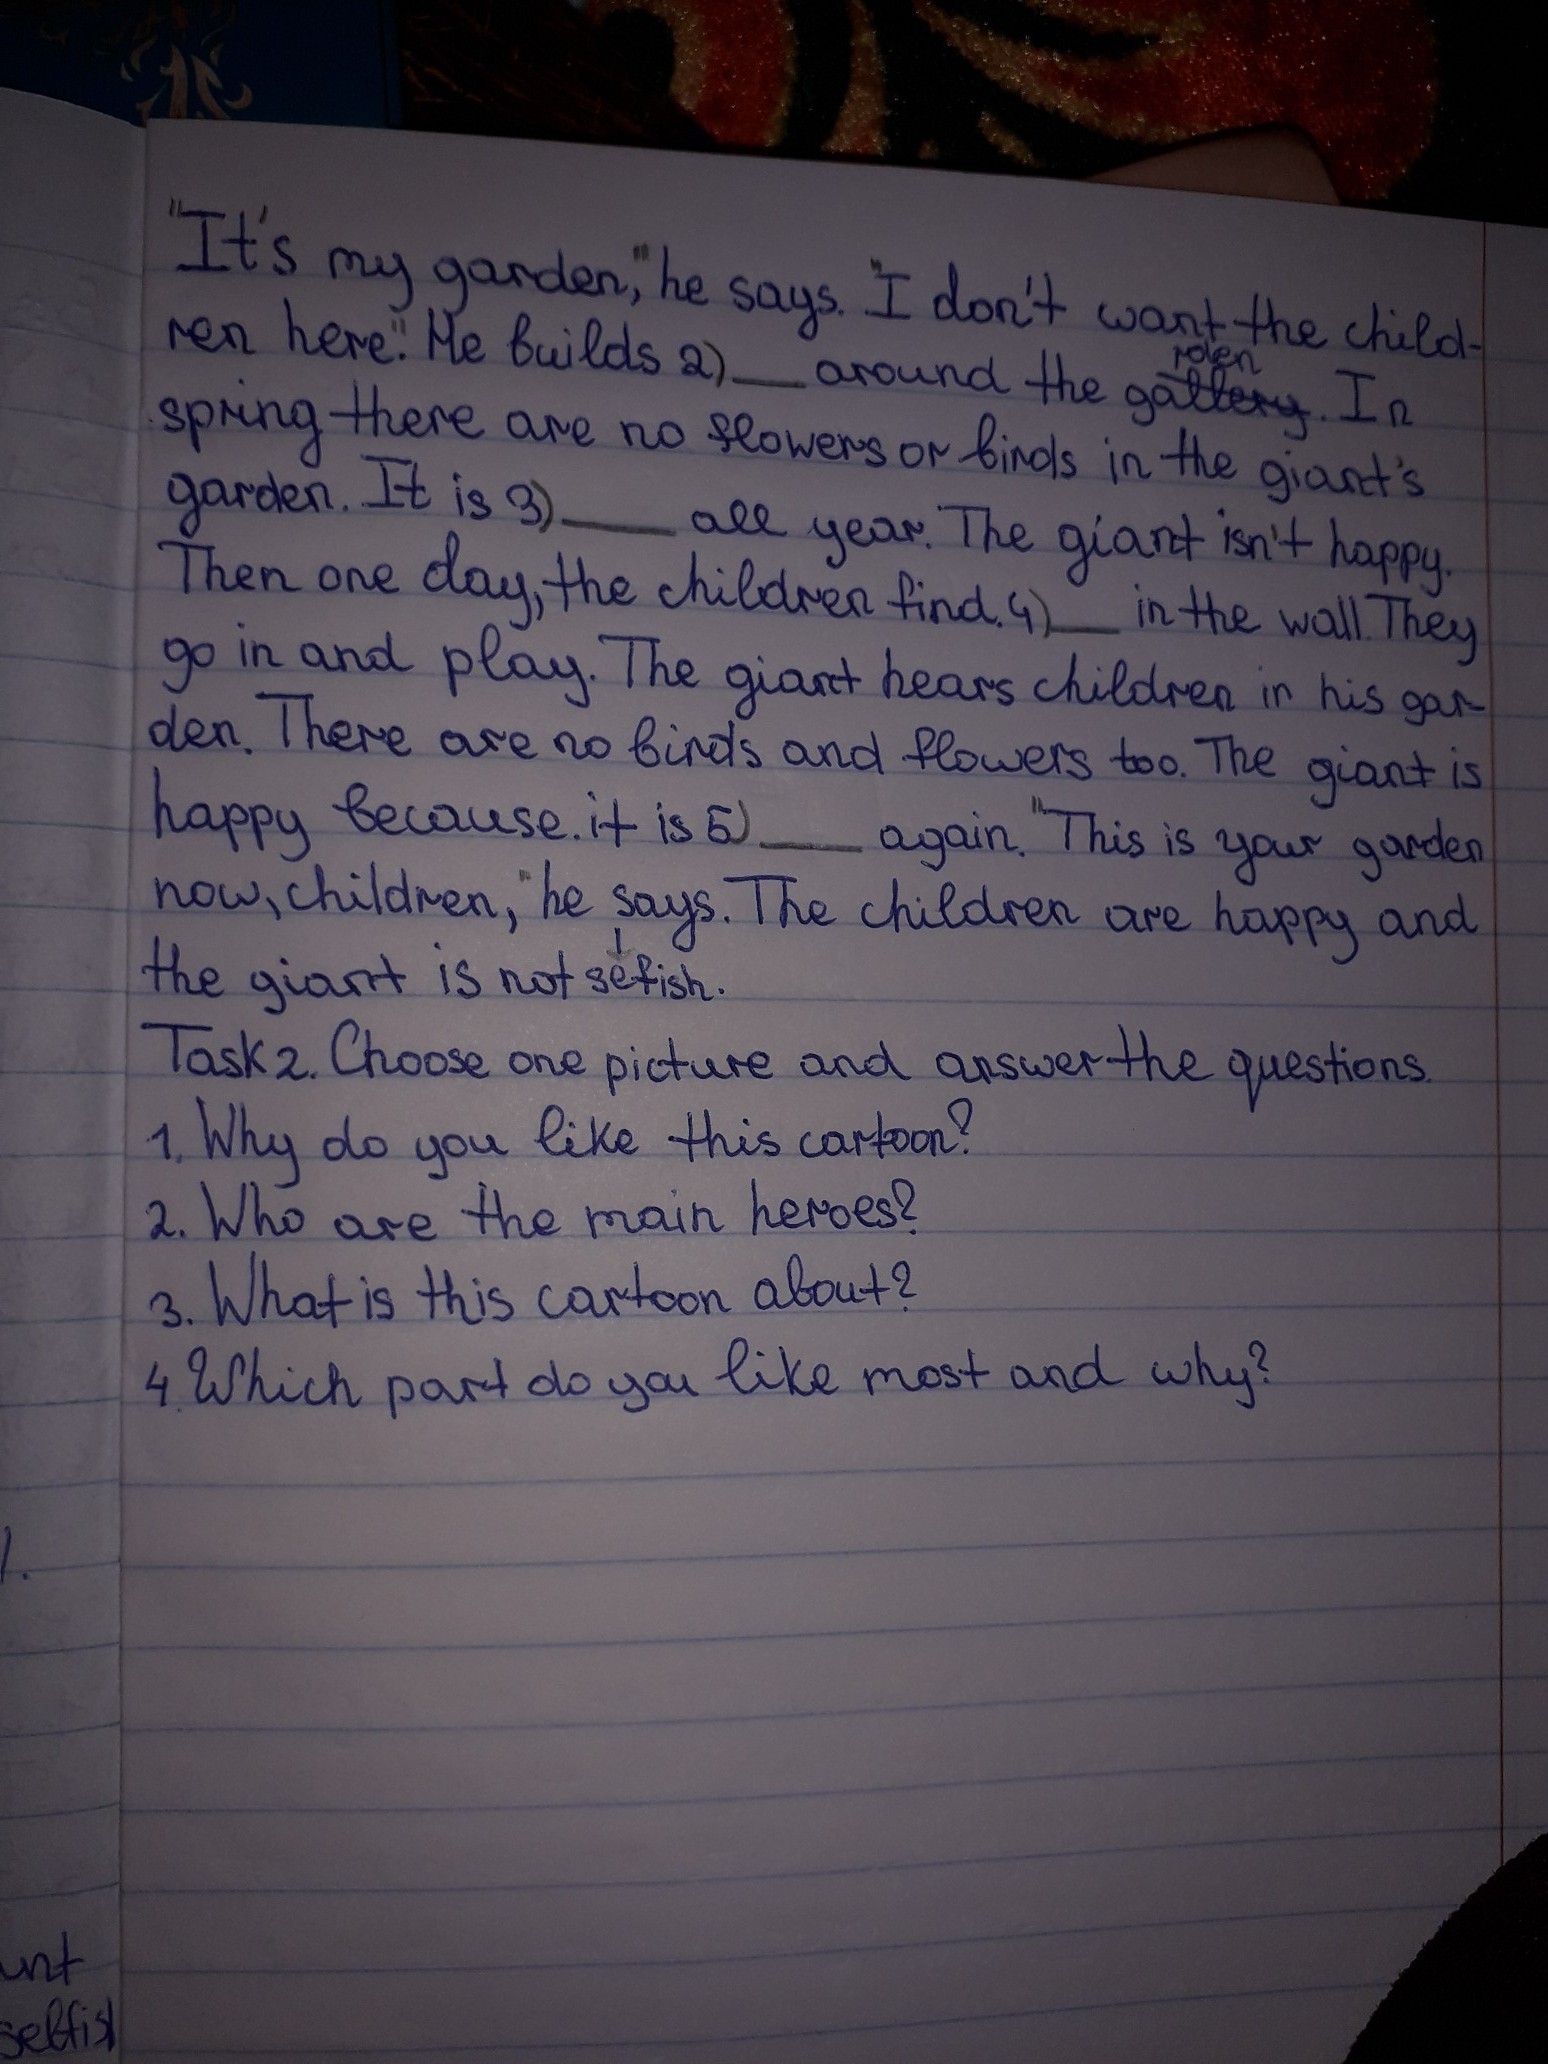 "It's my garden," he says. "I don't want the child-
ren here". He builds 2)___ around the garden. In
spring there are no flowers or birds in the giant's
garden. It is 3)____ all year. The giant isn't happy.
Then one day, the children find. 4)___ in the wall. They
go in and play. The giant hears children in his gar-
den. There are no birds and flowers too. The giant is
happy because. it is 5)____ again. "This is your garden
now, children," he says. The children are happy and
the giant is not selfish.
Task 2. Choose one picture and answer the questions.
1. Why do you like this cartoon?
2. Who are the main heroes?
3. What is this cartoon about?
4. Which part do you like most and why?